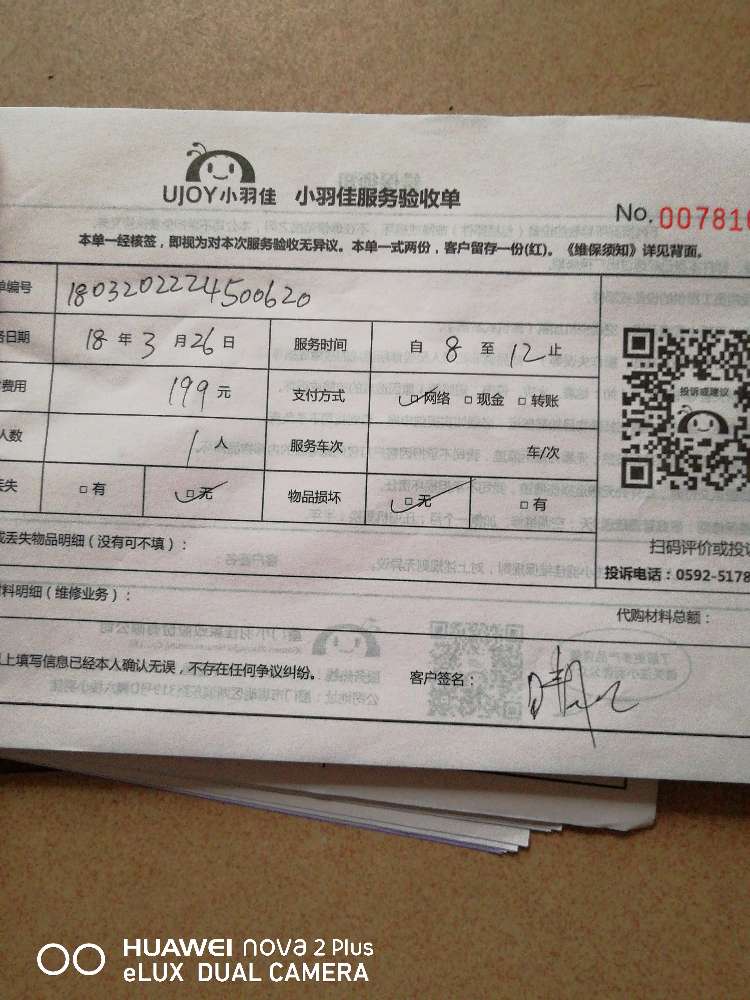 UJOY小羽佳 小羽佳服务验收单
No. 007816
本单一经核签，即视为对本次服务验收无异议。本单一式两份，客户留存一份(红)。《维保须知》详见背面。
单编号 180320222450​0620
务日期 18 年 3 月 26 日 服务时间 自 8 至 12 止
费用 199 元 支付方式 网络 现金 转账
人数 1 人 服务车次 车/次
丢失 有 无 物品损坏 无 有
投诉或建议
扫码评价或投诉
投诉电话：0592-5178
或丢失物品明细（没有可不填）：
材料明细（维修业务）：
代购材料总额：
以上填写信息已经本人确认无误，不存在任何争议纠纷。 客户签名：
HUAWEI nova 2 Plus
eLUX DUAL CAMERA